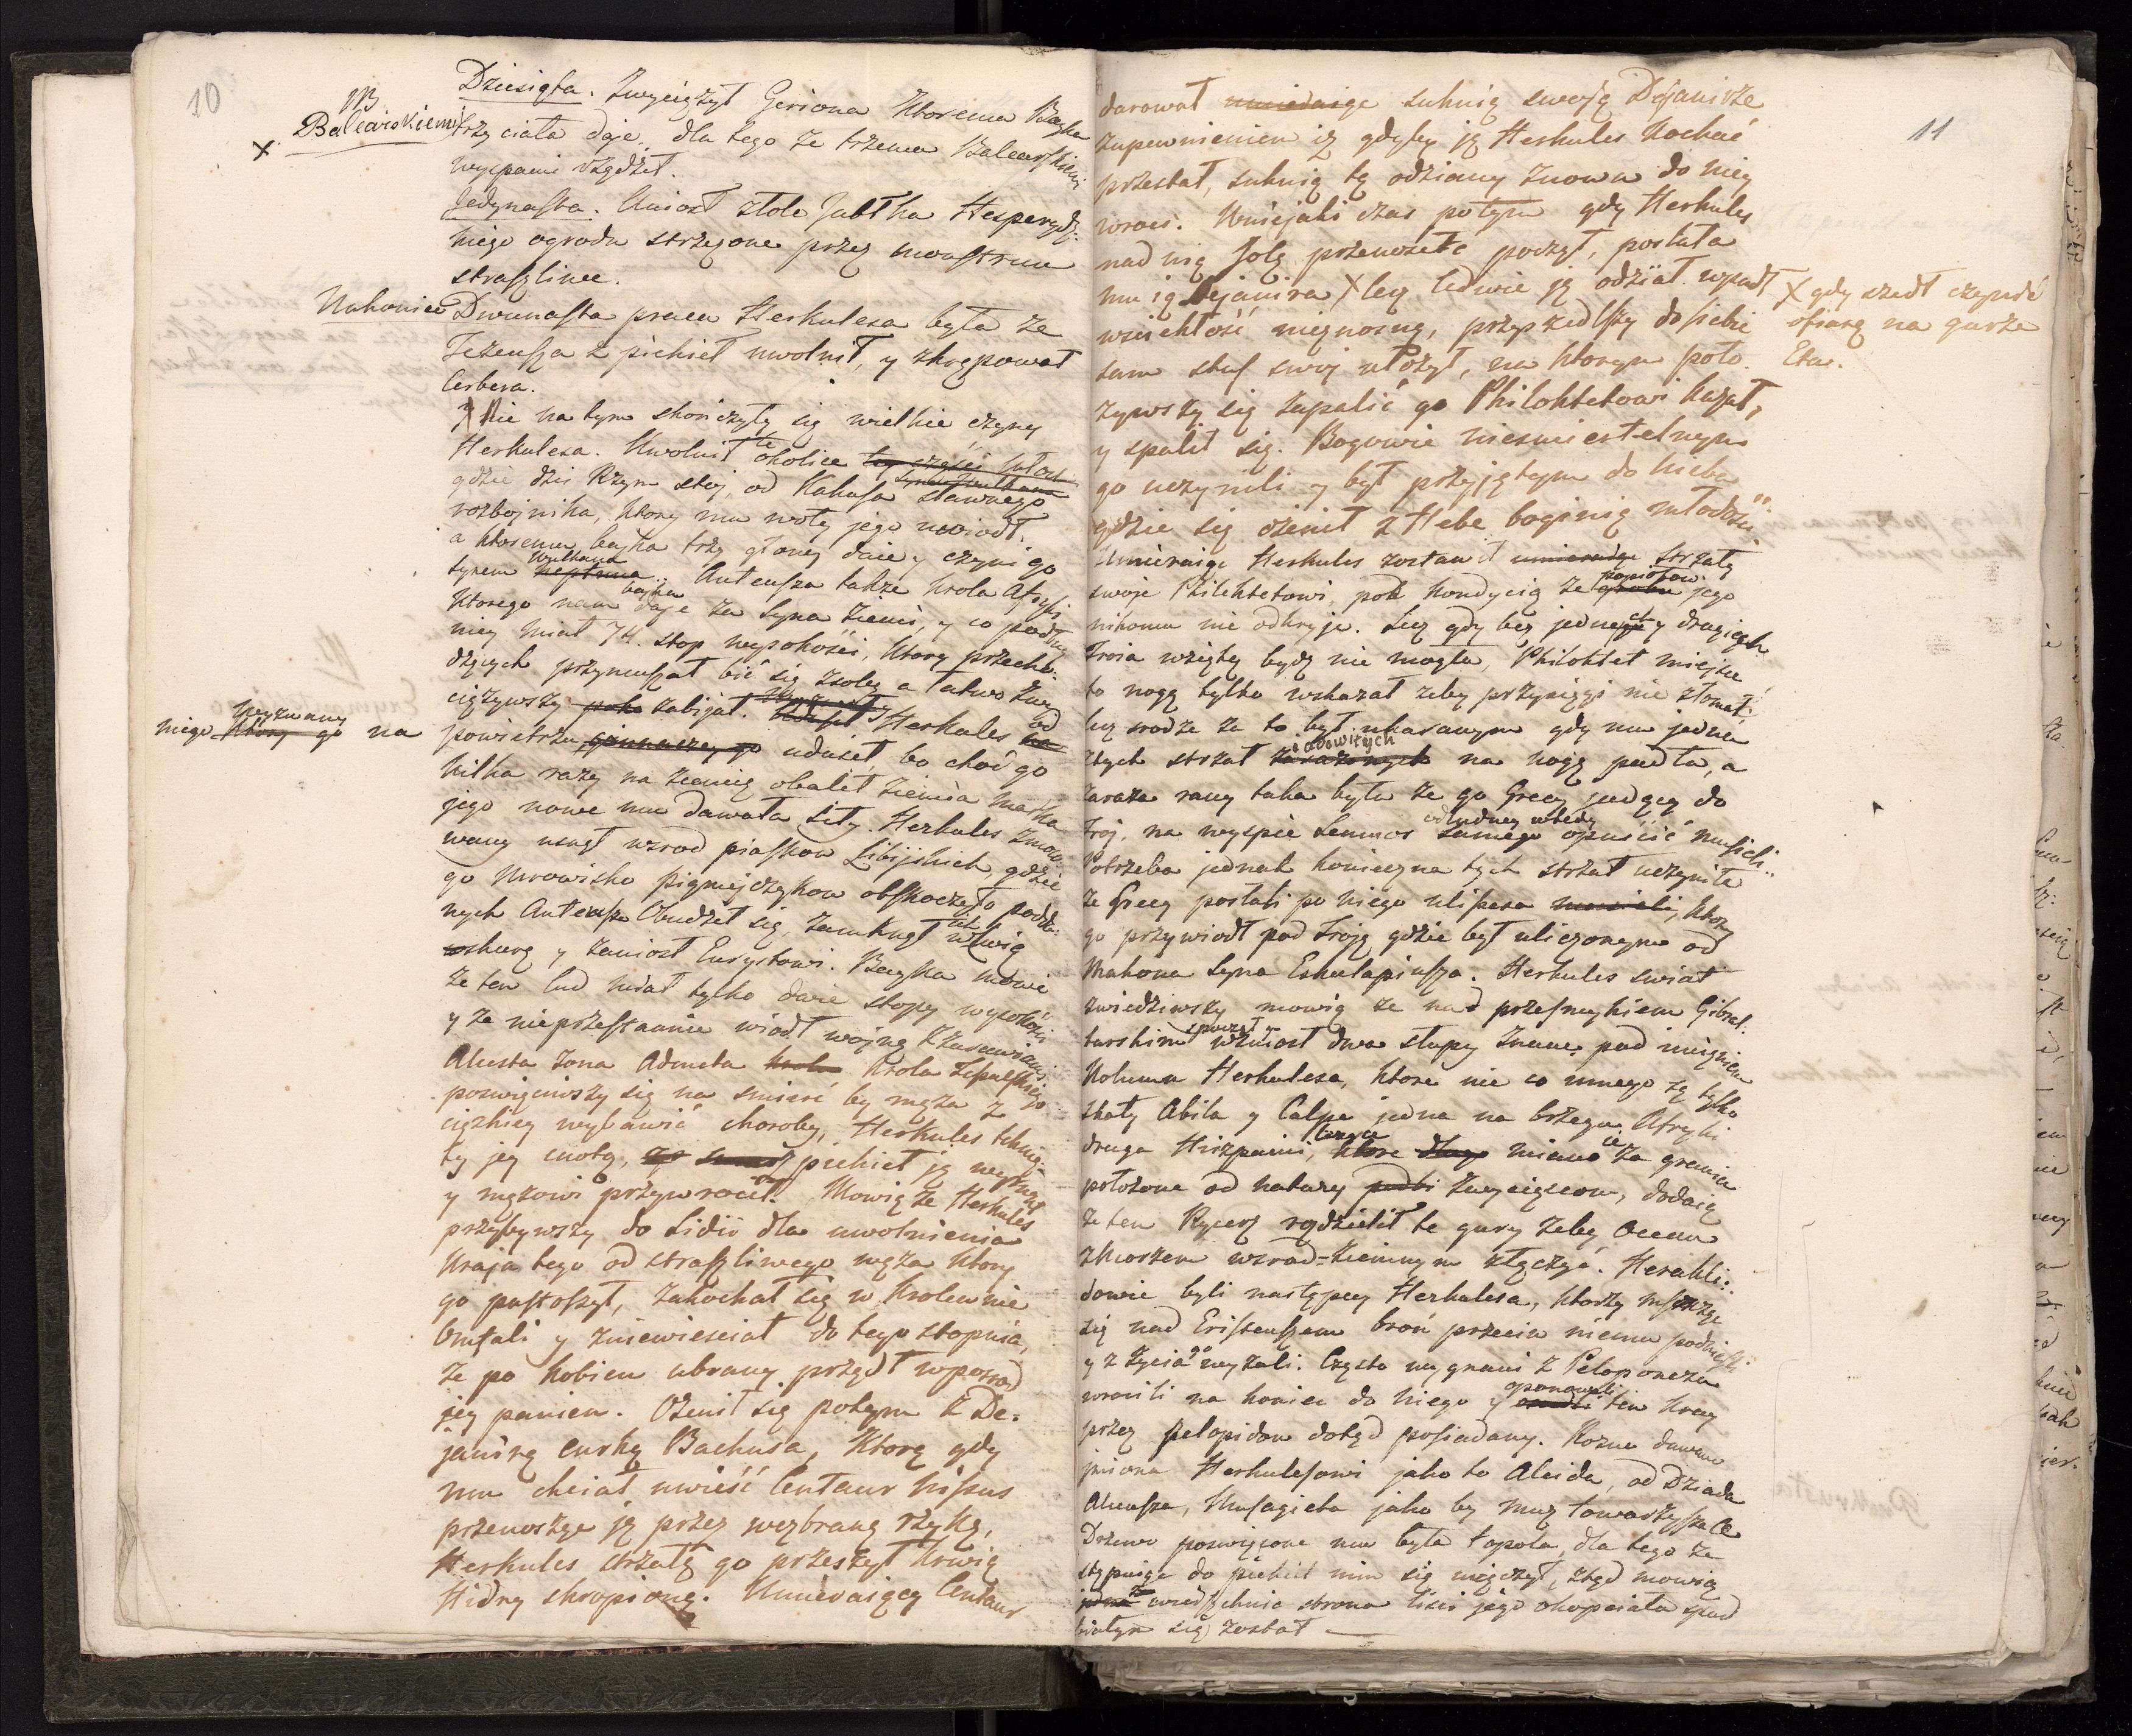 10
NB
Balearskiemi
x
Dziesiąta. Zwyciężył Geriona ktoremu Bayka
trzy ciała daje, dla tego że trzema Balearskiemi
wyspami rządził.
Jedynasta. Uniosł złote Jabłka Hesperydz:
kiego ogrodu strzeżone przez monstrum
straszliwe.
Nakoniec Dwunasta praca Herkulesa była że
Tezeusza z piekieł uwolnił, y skrępował
Cerbera.
Nie na tym skończyły się wielkie czyny
Herkulesa. Uwolnił te okolice
gdzie dziś Rzym stoj, od Kakusa sławnego
rozbojnika, ktory mu woły jego uwiodł.
a ktoremu bajka trzy głowy daie y czyni go
synem Wulkana neptuna. Anteusza także krola Afryki
ktorego nam bajka daje za syna Ziemi, y co podług
niey miał 74. stop wysokości, ktory przecho:
dzących przymuszał bić się z sobą a łatwo zwy
ciężywszy zabijał. Herkules od
niego wyzwany ktory go na
powietrzu udusił, bo choć go
kilka razy na ziemię obalił ziemia matka
jego nowe mu dawała siły. Herkules zmordo
wany usnął wśrod piaskow Libijskich, gdzie
go mrowisko pigmejczykow obskoczyło podda:
nych Anteusza Obudził się, zamknął ich w lwią
skurę y zaniosł Eurystowi. Bayka mowi
że ten lud miał tylko dwie stopy wysokości
y że nieprzestannie wiodł wojnę z Żurawiami.
Alcesta żona Admeta krola Tessalskiego
poswięciwszy się na smierć by męża z
ciężkiey wybawić choroby, Herkules tknię:
ty jey cnotą, z piekieł ją wyrwał
y mężowi przywrocił. Mowią że Herkules
przybywszy do Lidii dla uwolnienia
kraju tego od straszliwego węża ktory
go pustoszył, zakochał się w krolewnie
Omfali y zniewieściał do tego stopnia,
że po kobiecu ubrany przędł wposrod
jey panien. Ożenił się potym z De:
janirą curką Bachusa, ktorą gdy
mu chciał uwieść Centaur Nissus
przenosząc ją przez wezbraną rzykę,
Herkules strzałą go przeszył krwią
Hidry skropioną. Umieraiący Centaur
11
darował umieraiąc suknię swoją Dejanirze
zapewnieniem iż gdyby ją Herkules kochać
przestał, suknią tą odziany znowu do niey
wroci. Wniejaki czas potym gdy Herkules
nad nią Jolę przenosić począł, posłała
mu ią Dejanira X lecz ledwie ją odział wpadł
X gdy szedł czynić
ofiarę na gurze
Eta.
wsciekłość nieznosną, przyszedłszy do siebie
sam stos swoj ułożył, na ktorym poło.
żywszy się zapalić go Philoktetowi kazał,
y spalił się. Bogowie niesmiertelnym
go uczynili y był przyjętym do nieba
gdzie się ożenił z Hebe boginią młodości.
Umieraiąc Herkules zostawił umieraiąc strzały
swoje Philoktetowi, pod kondycią że popiołow jego
nikomu nie odkryje. Lecz gdy bez jednych y drugich
Troia wziętą bydź nie mogła, Philoktet miejsce
to nogą tylko wskazał żeby przysięgi nie złomał.
lecz srodze za to był ukaranym gdy mu jedna
z tych strzał iadowitych zarażonych na nogę padła, a
zaraza rany taka była że go Grecy jadący do
Troj, na wyspie Lemnos odludney wtedy samego opuścić musieli.
Potrzeba jednak konieczna tych strzał uczyniła
że Grecy posłali po niego ulissesa musieli, ktory
go przywiodł pod Troję gdzie był uliczonym od
Makona syna Eskulapiusza. Herkules swiat
zwiedziwszy mowią że nad przesmykiem Gibral:
tarskim wzniosł dwa słupy znane pod imięniem
Kolumn Herkulesa, ktore nie co innego są tylko
skały Abila y Calpa jedna na brzegu Afryki
druga Hiszpanii, ktore długo miano za granice
położone od natury zwycięzcom, dodaią
że ten Rycerz rozdzielił te gury żeby Ocean
z morzem wsrod-ziemnym złączyć. Herakli:
dowie byli następcy Herkulesa, ktorzy mszcząc
się nad Eristeuszem broń przeciw niemu podnieśli
y z życia go wyzuli. Często wygnani z Peloponezu
wrocili na koniec do niego y opanowali ten kray
przez Pelopidow dotąd posiadany. Rożne dawano
jmiona Herkulesowi jako to Alcida, od Dziada
Alceusza, Musagieta jako by muz towarzyszа
Drzewo poswięcone mu była topola, dla tego że
stąpuiąc do piekieł nim się uwieńczył, ztąd mowią
że wierzchnia strona lisci jego okopciała spod
białym się został —